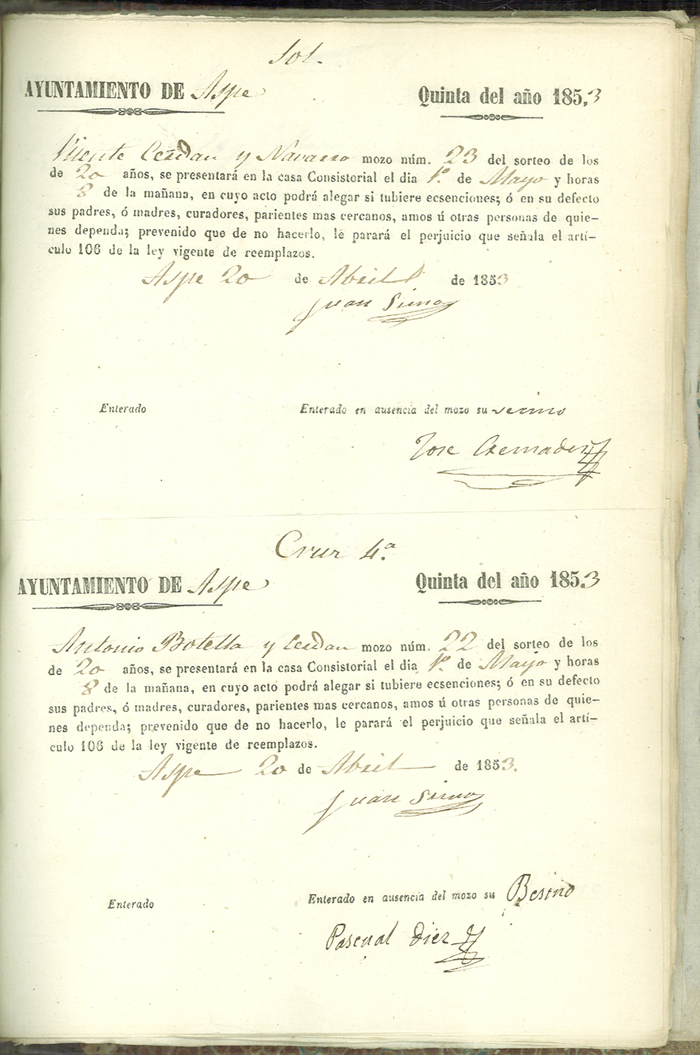 Sol.
AYUNTAMIENTO DE Aspe Quinta del año 1853
Vicente Cerdan y Navarro mozo núm. 23 del sorteo de los
de 20 años, se presentará en la casa Consistorial el dia 1º de Mayo y horas
8 de la mañana, en cuyo acto podrá alegar si tubiere ecsenciones; ó en su defecto
sus padres, ó madres, curadores, parientes mas cercanos, amos ú otras personas de quie-
nes dependa; prevenido que de no hacerlo, le parará el perjuicio que señala el artí-
culo 106 de la ley vigente de reemplazos.
Aspe 20 de Abril de 1853
Juan
Enterado Enterado en ausencia del mozo su
Jose Cremades
Cruz 4.a
AYUNTAMIENTO DE Aspe Quinta del año 1853
Antonio Botella y Cerdan mozo núm. 22 del sorteo de los
de 20 años, se presentará en la casa Consistorial el dia 1º de Mayo y horas
8 de la mañana, en cuyo acto podrá alegar si tubiere ecsenciones; ó en su defecto
sus padres, ó madres, curadores, parientes mas cercanos, amos ú otras personas de quie-
nes dependa; prevenido que de no hacerlo, le parará el perjuicio que señala el artí-
culo 106 de la ley vigente de reemplazos.
Aspe 20 de Abril de 1853.
Juan
Enterado Enterado en ausencia del mozo su Besino
Pascual Diez